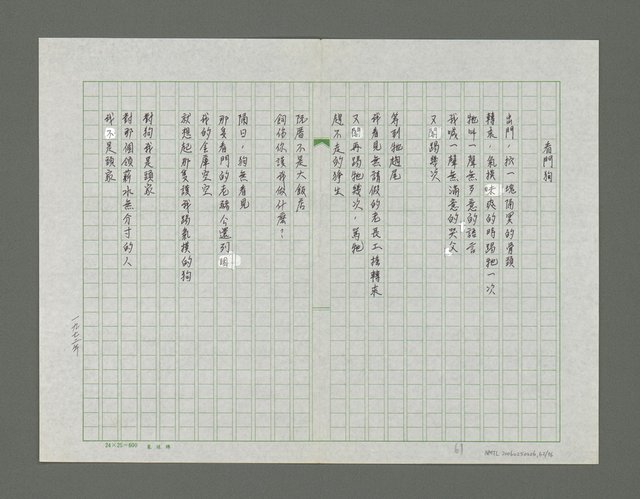 看門狗
出門,扔一塊隔暝的骨頭
轉來,氣摸
爽的時踢牠一次
牠叫一聲無歹意的語言
我喊一聲無滿意的哭父
又閣踢幾次
等到牠翹尾
我看見無請假的老長工搖轉來
又閣再踢牠幾次,罵牠
趕不走的猙生
阮厝不是大飯店
飼你你讓我做什麼?
隔日,狗無看見
那隻看門的老
我的金庫空空
就想起那隻讓我踢氣摸的狗
對狗我是頭家
對那個領薪水無介寸的人
我不是頭家
一九七六年
24×25=600
61
NMTL